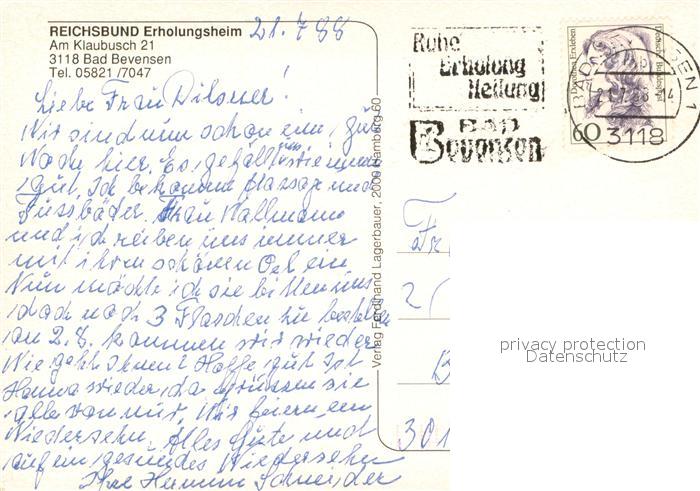 REICHSBUND Erholungsheim
Am Klaubusch 21
3118 Bad Bevensen
Tel. 05821 /7047
21.7.88
Liebe Frau Dilsner!
Wir sind nun schon eine gute
Woche hier. Es gefällt uns wie immer
gut. Ich bekomme Massage und
Fussbäder. Frau Wallmann
und ich reiben uns immer
mit ihrem schönen Oel ein
Nun möchte ich sie bitten uns
doch noch 3 Flaschen zu bestellen
am 2.8. kommen wir wieder
Wie geht Ihnen? Hoffe gut. Ist
Hanna wieder da grüssen sie
alle von mir. Wir feiern ein
Wiedersehn. Alles Gute und
auf ein gesundes Wiedersehn
Ihre Hermine Schneider
Verlag Ferdinand Lagerbauer, 2000 Hamburg 60
Ruhe
Erholung
Heilung
BAD
Bevensen
Dorothea Erxleben
Deutsche Bundespost
60
3118
Fr
2
B
301
privacy protection
Datenschutz